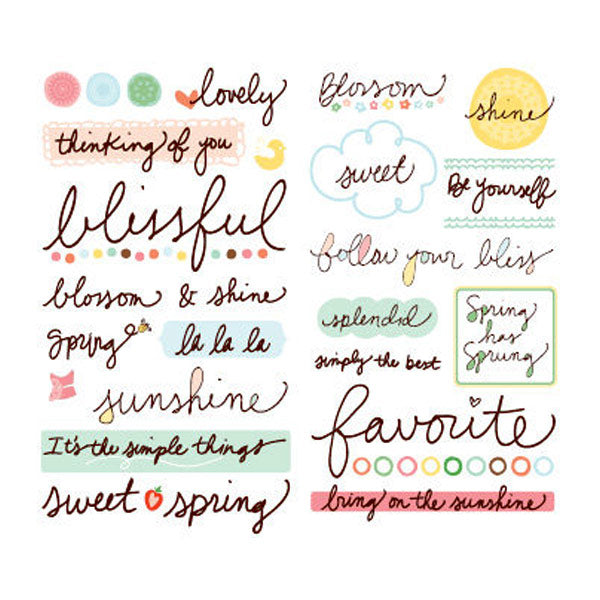 lovely
thinking of you
blissful
blossom & shine
Spring
la la la
sunshine
It's the simple things
sweet spring
Blossom
shine
sweet
Be yourself
follow your bliss
splendid
simply the best
Spring
has
Sprung
favorite
bring on the sunshine